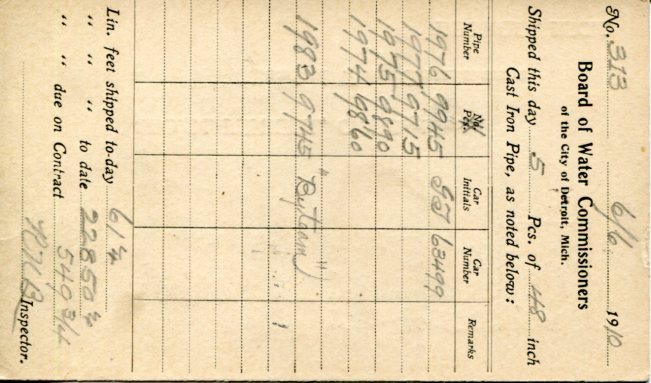 No. 313 6/6 1910
Board of Water Commissioners
of the City of Detroit, Mich.
Shipped this day 5 Pcs. of 48 inch
Cast Iron Pipe, as noted below:
Pipe Number No. Pcs. Car Initials Car Number Remarks
1976 9945 63499
1977 9715
1975 9890
1974 9860
1983 9745
Lin. feet shipped to-day 61 1/4
" " " to date 22850 1/2
" " due on Contract 540 3/4
Inspector.